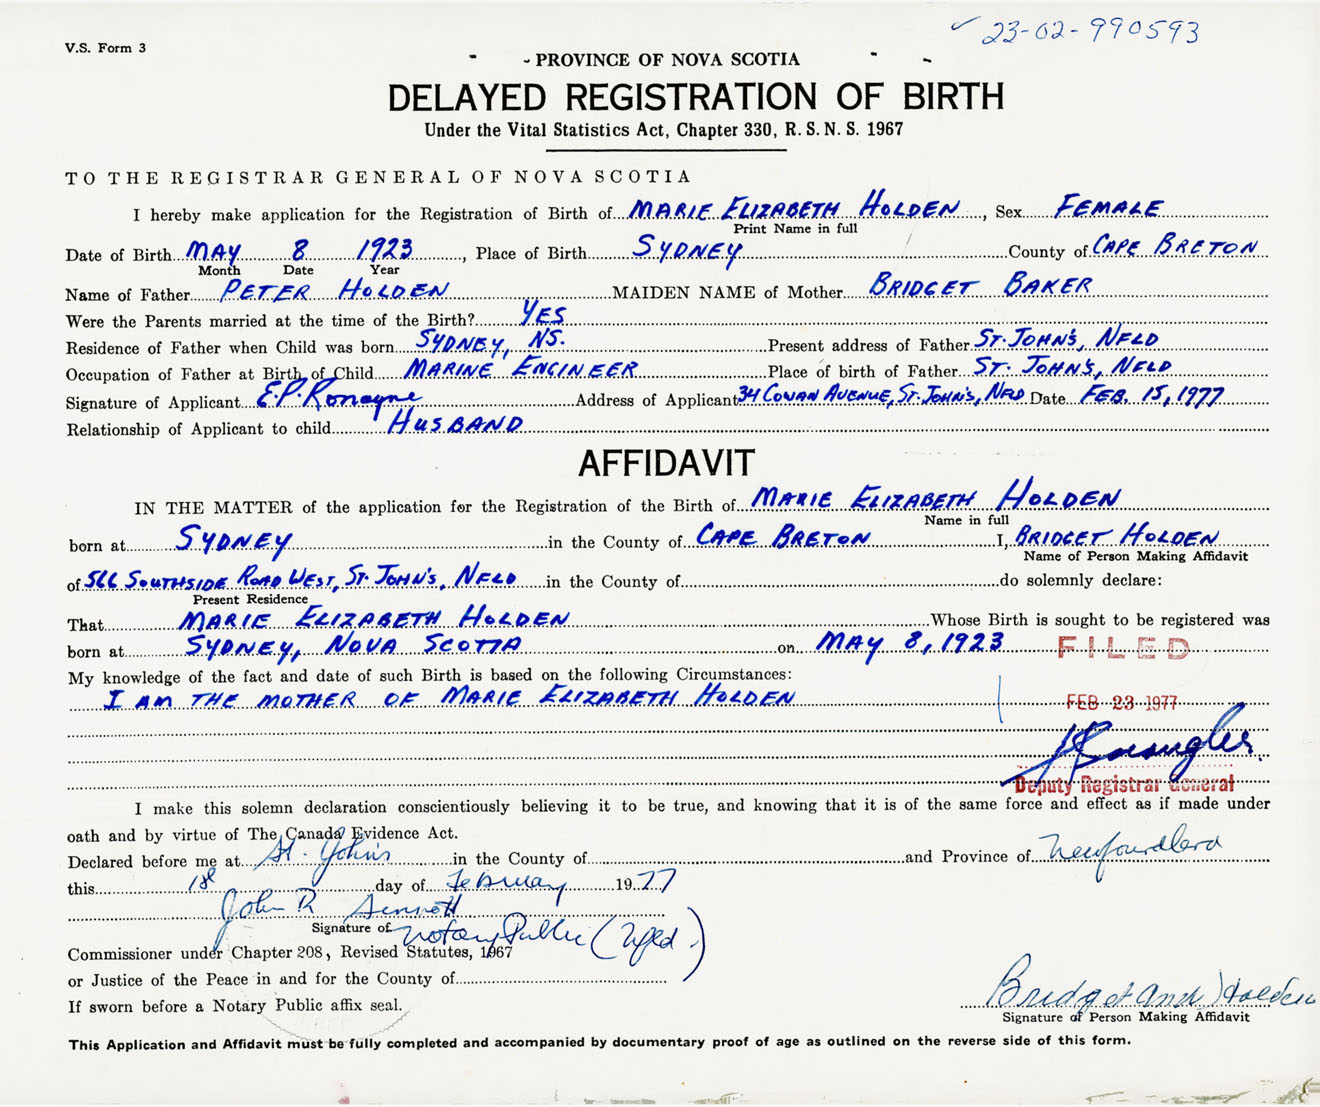 23-02-990593
V.S. Form 3
PROVINCE OF NOVA SCOTIA
DELAYED REGISTRATION OF BIRTH
Under the Vital Statistics Act, Chapter 330, R. S. N. S. 1967
TO THE REGISTRAR GENERAL OF NOVA SCOTIA
I hereby make application for the Registration of Birth of MARIE ELIZABETH HOLDEN, Sex FEMALE
Print Name in full
Date of Birth MAY 8 1923, Place of Birth SYDNEY County of CAPE BRETON
Month Date Year
Name of Father PETER HOLDEN MAIDEN NAME of Mother BRIDGET BAKER
Were the Parents married at the time of the Birth? YES
Residence of Father when Child was born SYDNEY, NS. Present address of Father ST. JOHN'S, NFLD
Occupation of Father at Birth of Child MARINE ENGINEER Place of birth of Father ST. JOHN'S, NFLD
Signature of Applicant E.P. Ronayne Address of Applicant 34 COWAN AVENUE, ST. JOHN'S, NFLD Date FEB. 15, 1977
Relationship of Applicant to child HUSBAND
AFFIDAVIT
IN THE MATTER of the application for the Registration of the Birth of MARIE ELIZABETH HOLDEN
Name in full
born at SYDNEY in the County of CAPE BRETON I, BRIDGET HOLDEN
Name of Person Making Affidavit
of 566 SOUTHSIDE ROAD WEST, ST. JOHN'S, NFLD in the County of do solemnly declare:
Present Residence
That MARIE ELIZABETH HOLDEN Whose Birth is sought to be registered was
born at SYDNEY, NOVA SCOTIA on MAY 8, 1923 FILED
My knowledge of the fact and date of such Birth is based on the following Circumstances:
I AM THE MOTHER OF MARIE ELIZABETH HOLDEN FEB 23 1977
Deputy Registrar General
I make this solemn declaration conscientiously believing it to be true, and knowing that it is of the same force and effect as if made under
oath and by virtue of The Canada Evidence Act.
Declared before me at St. John's in the County of and Province of Newfoundland
this 1st day of February 1977
John R
Signature of Notary Public (Nfld.)
Commissioner under Chapter 208, Revised Statutes, 1967
or Justice of the Peace in and for the County of
If sworn before a Notary Public affix seal.
Bridget Ann Holden
Signature of Person Making Affidavit
This Application and Affidavit must be fully completed and accompanied by documentary proof of age as outlined on the reverse side of this form.